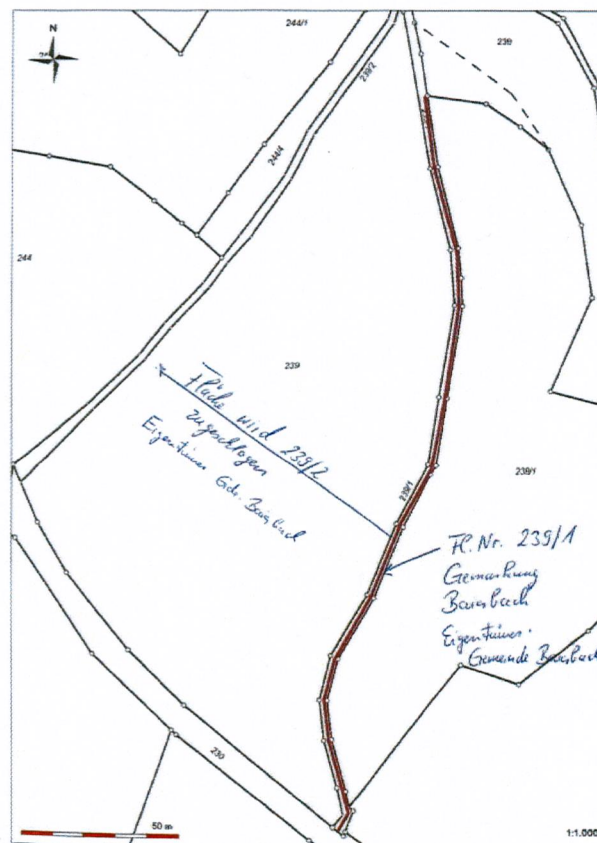 244/1
N
239
239/2
244/4
244
239
Fläche wird 239/2
zugeschlagen
Eigentümer Gde.
239/1
239/1
Fl. Nr. 239/1
Gemarkung
Eigentümer:
Gemeinde
230
50 m
1:1.000